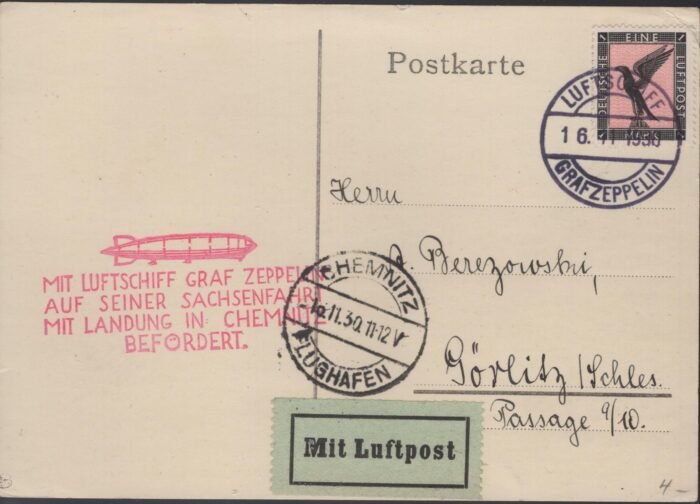 Postkarte
DEUTSCHE EINE LUFTPOST
LUFTSCHIFF
16.11.1930
GRAF ZEPPELIN
Herrn
Berezowski,
Görlitz/Schles.
Passage 9/10.
MIT LUFTSCHIFF GRAF ZEPPELIN
AUF SEINER SACHSENFAHRT
MIT LANDUNG IN CHEMNITZ
BEFÖRDERT.
CHEMNITZ
11.30.11-12 V
FLUGHAFEN
Mit Luftpost
4-